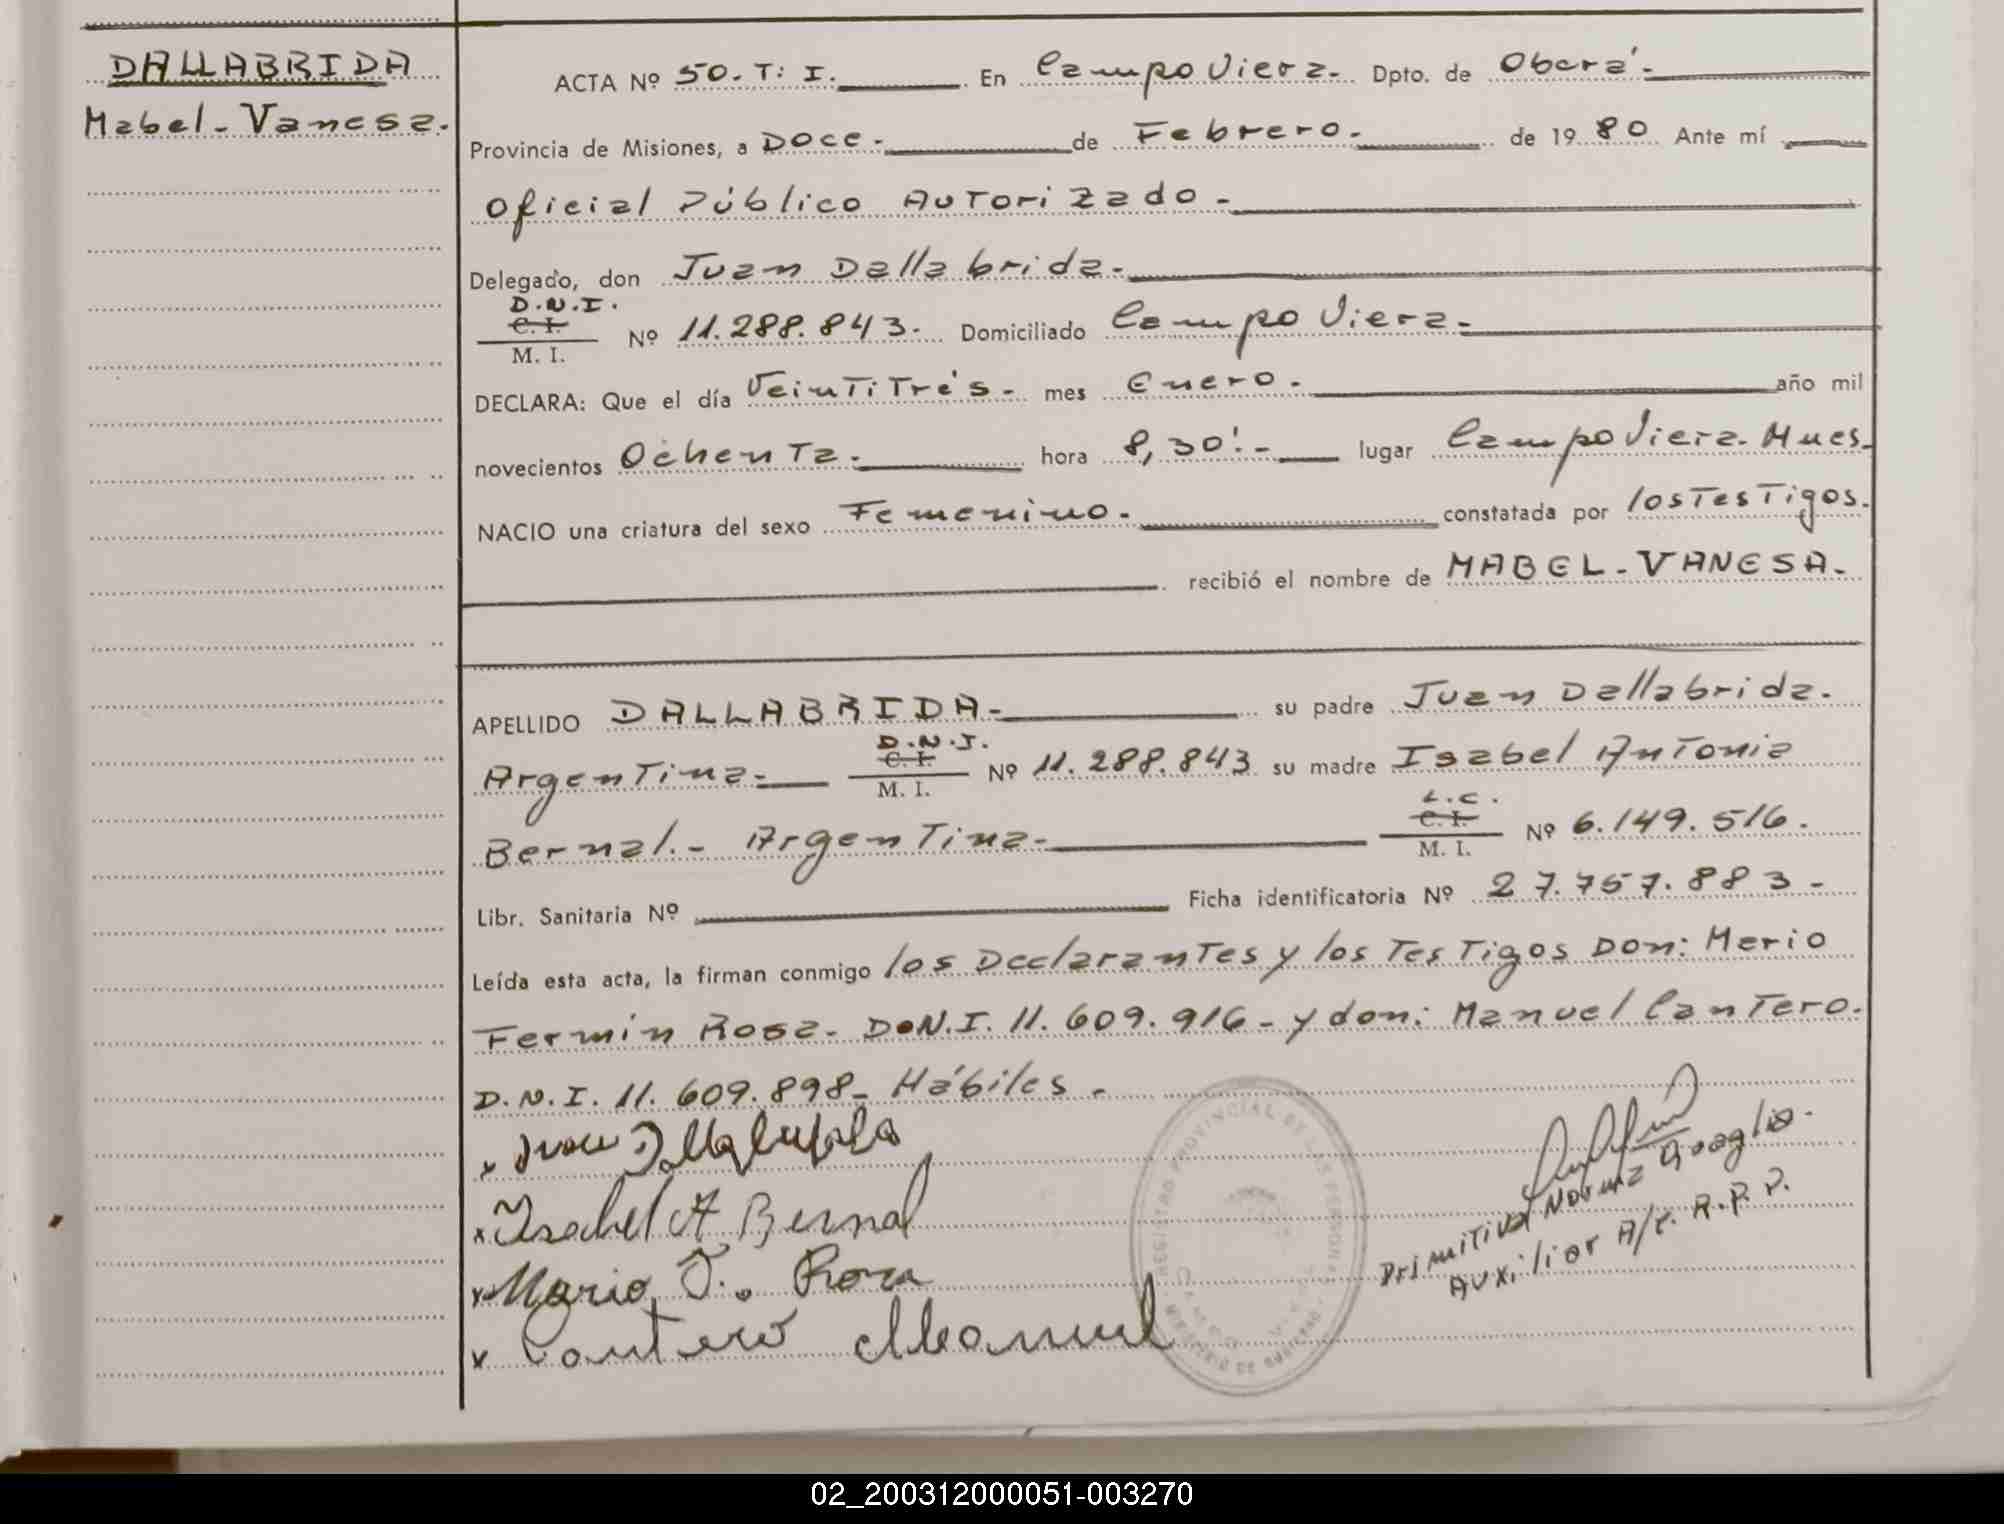 DALLABRIDA
Mabel-Vanesa.
ACTA Nº 50. T: I. En Campo Viera. Dpto. de Oberá.
Provincia de Misiones, a Doce. de Febrero. de 19 80 Ante mí
Oficial Público Autorizado.
Delegado, don Juan Dallabrida.
D.N.I.
C. I.
M. I.
Nº 11.288.843. Domiciliado Campo Viera.
DECLARA: Que el día Veintitrés. mes Enero. año mil
novecientos Ochenta. hora 8,30'. lugar Campo Viera. Mnes.
NACIO una criatura del sexo Femenino. constatada por los Testigos.
recibió el nombre de MABEL-VANESA.
APELLIDO DALLABRIDA. su padre Juan Dallabrida.
D.N.I.
Argentina. C. I. Nº 11.288.843 su madre Isabel Antonia
M. I.
L.C.
Bernal.- Argentina. C. I. Nº 6.149.516.
M. I.
Libr. Sanitaria Nº Ficha identificatoria Nº 27.757.883-
Leída esta acta, la firman conmigo los Declarantes y los Testigos Don: Mario
Fermín Rosa. D.N.I. 11.609.916- y don: Manuel Cantero.
D.N.I. 11.609.898- Hábiles.
x Juan Dallabrida
x Isabel A Bernal
x Mario F. Rosa
x Cantero Manuel
REGISTRO PROVINCIAL DE LAS PERSONAS
MINISTERIO DE GOBIERNO
Primitiva Norma Quaglia.
Auxiliar A/c. R.P.P.
02_200312000051-003270